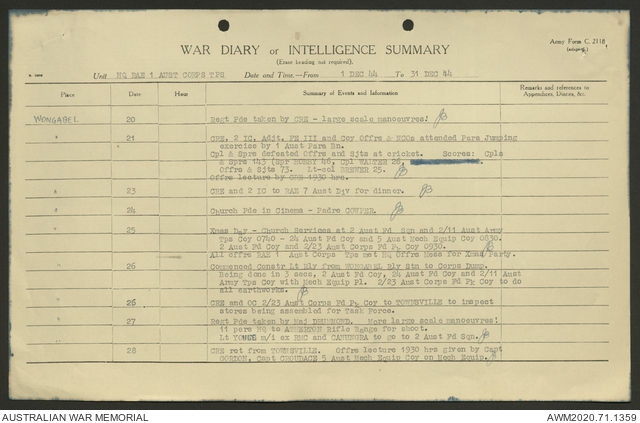 Army Form C. 2118
WAR DIARY or INTELLIGENCE SUMMARY
(Erase heading not required).
Unit HQ RAE 1 AUST CORPS TPS Date and Time.—From 1 DEC 44 To 31 DEC 44
Place Date Hour Summary of Events and Information Remarks and references to
Appendices, Diaries, &c.
WONGABEL 20 Regt Pde taken by CRE - large scale manoeuvres!
" 21 CRE, 2 IC, Adjt, FE III and Coy Offrs & NCOs attended Para Jumping
exercise by 1 Aust Para Bn.
Cpl & Sprs defeated Offrs and Sjts at cricket. Scores: Cpls
& Sprs 143 (Spr 46, Cpl 26,
Offrs & Sjts 73. Lt-col BREWER 25.
Offrs lecture by CRE 1930 hrs.
" 23 CRE and 2 IC to RAE 7 Aust Div for dinner.
" 24 Church Pde in Cinema - Padre COWPER.
" 25 Xmas Day - Church Services at 2 Aust Fd Sqn and 2/11 Aust Army
Tps Coy 0740 - 24 Aust Fd Coy and 5 Aust Mech Equip Coy 0830.
2 Aust Fd Coy and 2/23 Aust Corps Fd Pk Coy 0930.
All offrs RAE 1 Aust Corps Tps met HQ Offrs Mess for Xmas Party.
" 26 Commenced Constr Lt Rly from WONGABEL Rly Stn to Corps Dump.
Being done in 3 secs, 2 Aust Fd Coy, 24 Aust Fd Coy and 2/11 Aust
Army Tps Coy with Mech Equip Pl. 2/23 Aust Corps Fd Pk Coy to do
all earthworks.
" 26 CRE and OC 2/23 Aust Corps Fd Pk Coy to TOWNSVILLE to inspect
stores being assembled for Task Force.
" 27 Regt Pde taken by Maj DRUMMOND. More large scale manoeuvres!
11 pers HQ to ATHERTON Rifle Range for shoot.
Lt YOUNG m/i ex RMC and CANUNGRA to go to 2 Aust Fd Sqn.
" 28 CRE ret from TOWNSVILLE. Offrs lecture 1930 hrs given by Capt
GORDON, Capt CROUDACE 5 Aust Mech Equip Coy on Mech Equip.
AUSTRALIAN WAR MEMORIAL AWM2020.71.1359